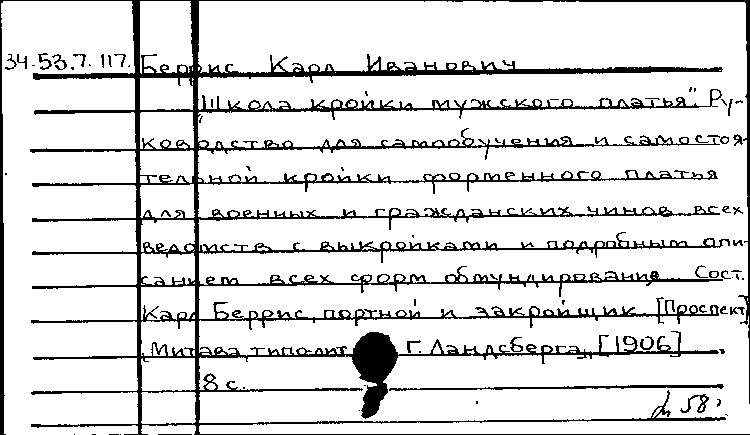 34-53.7.117. Беррис, Карл Иванович
„Школа кройки мужского платья". Ру-
ководство для самообучения и самостоя-
тельной кройки форменного платья
для военных и гражданских чинов всех
ведомств с выкройками и подробным опи-
санием всех форм обмундирования. Сост.
Карл Беррис, портной и закройщик. [Проспект]
Митава, типо-лит. Г. Ландсберга, [1906].
8 с.
58